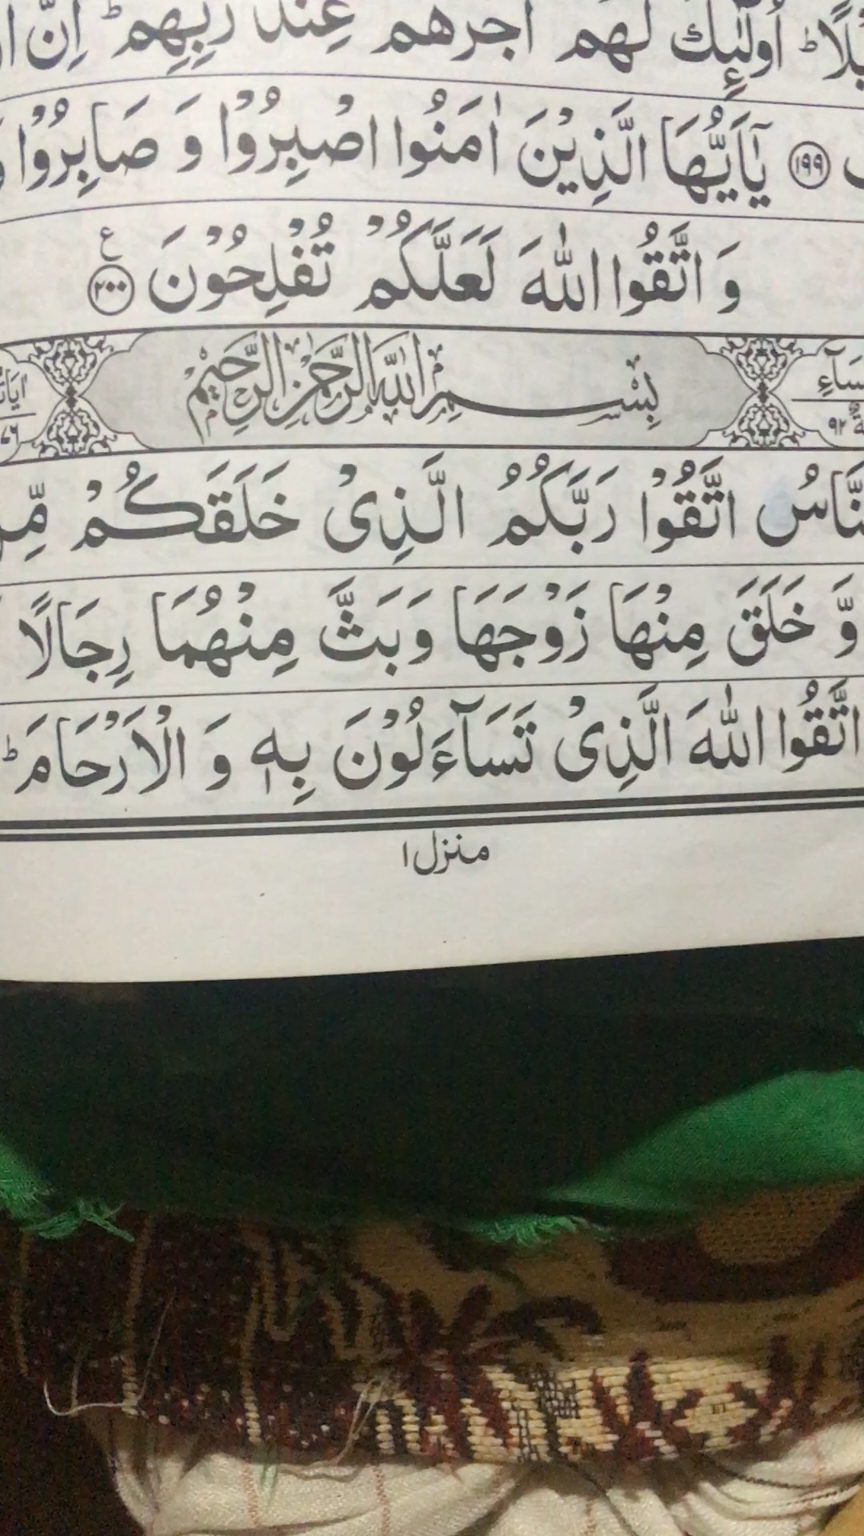 اُولٰٓئِكَ لَهُمْ اَجْرُهُمْ عِنْدَ رَبِّهِمْ ؕ اِنَّ
۱۹۹ یٰۤاَیُّهَا الَّذِیْنَ اٰمَنُوا اصْبِرُوْا وَ صَابِرُوْا
وَ اتَّقُوا اللّٰهَ لَعَلَّكُمْ تُفْلِحُوْنَ ۲۰۰ ع
بِسْمِ اللّٰهِ الرَّحْمٰنِ الرَّحِیْمِ
اتَّقُوْا رَبَّكُمُ الَّذِیْ خَلَقَكُمْ
وَّ خَلَقَ مِنْهَا زَوْجَهَا وَ بَثَّ مِنْهُمَا رِجَالًا
اتَّقُوا اللّٰهَ الَّذِیْ تَسَآءَلُوْنَ بِهٖ وَ الْاَرْحَامَ ؕ
منزل ۱